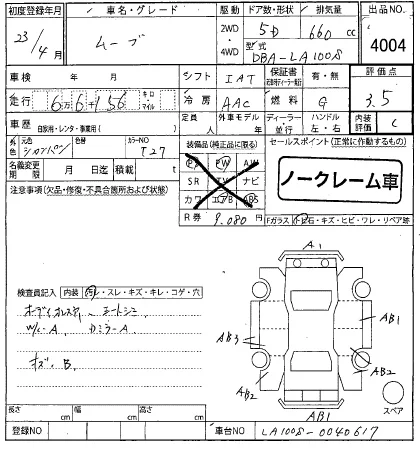 初度登録年月 車名・グレード 駆動 ドア数・形状 排気量 出品NO.
23/4月 ムーブ 2WD・4WD 5D 660 cc 4004
型式 DBA-LA100S
車検 年 月 シフト IAT 保証書 有・無 評価点
走行 6万6千156 キロ マイル 冷房 AAC 燃料 G 3.5
車歴 自家用・レンタ・事業用( ) 定員 人 外車モデル 年 ディーラー・並行 ハンドル 左・右 内装評価 C
外色 元色 色替 カラーNO T27
装備品(純正品に限る) セールスポイント(正常に作動するもの)
名義変更期限 月 日迄 積載 t
PS PW AW
SR TV ナビ
カワ エアB ABS
ノークレーム車
注意事項(欠品・修復・不具合箇所および状態)
R券 9,080円
Fガラス 飛石・キズ・ヒビ・ワレ・リペア跡
A1
検査員記入 内装 汚レ・スレ・キズ・キレ・コゲ・穴
AB1
AB3
キズ、B
AB2
AB2
スペア
AB1
長さ cm 幅 cm 高さ cm
登録NO 車台NO LA100S-0040617